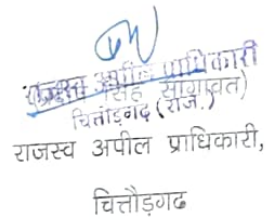 राजस्व अपील प्राधिकारी
सिंह सांगावत)
चित्तौड़गढ़ (राज.)
राजस्व अपील प्राधिकारी,
चित्तौड़गढ